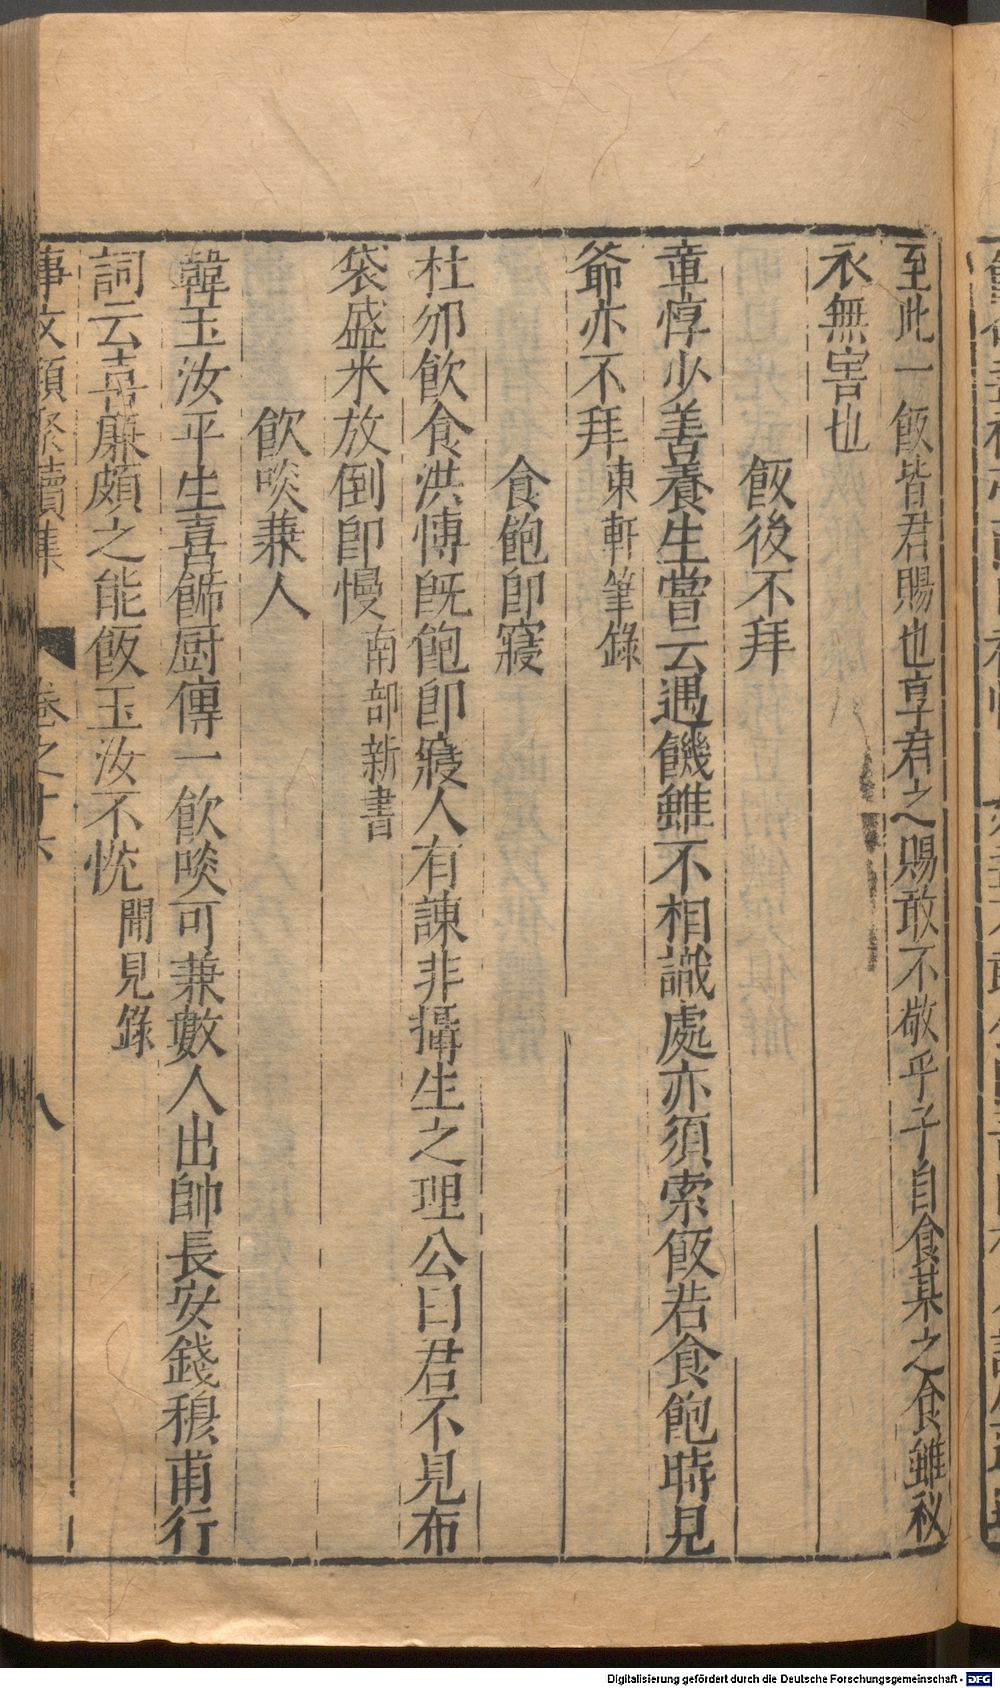 至此一飯皆君賜也享君之賜敢不敬乎子自食某之食雖秘
衣無害也
飯後不拜
章惇少善養生嘗云遇饑雖不相識處亦須索飯若食飽時見
爺亦不拜東軒筆錄
食飽卽寢
杜邠飲食洪愽既飽卽寢人有諫非攝生之理公曰君不見布
袋盛米放倒卽慢南部新書
飲啖兼人
韓玉汝平生喜飾厨傳一飲啖可兼數人出帥長安錢穆甫行
詞云喜廉頗之能飯玉汝不悅聞見錄
事文類聚續集 卷之十六 八
Digitalisierung gefördert durch die Deutsche Forschungsgemeinschaft - DFG